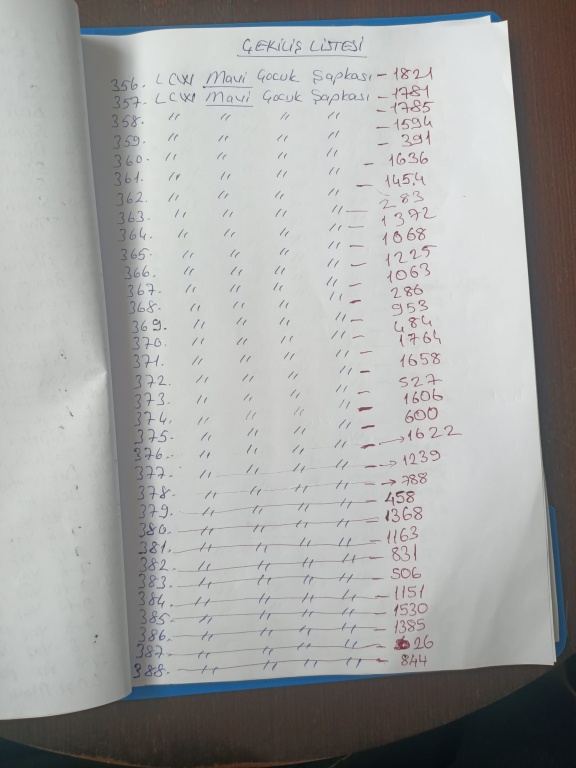 ÇEKİLİŞ LİSTESİ
356. LCW Mavi Çocuk Şapkası - 1821
357. LCW Mavi Çocuk Şapkası - 1781
358. " " " " - 1785
359. " " " " - 1594
360. " " " " - 391
361. " " " " - 1636
362. " " " " - 1454
363. " " " " - 283
364. " " " " - 1372
365. " " " " - 1068
366. " " " " - 1225
367. " " " " - 1063
368. " " " " - 286
369. " " " " - 953
370. " " " " - 484
371. " " " " - 1764
372. " " " " - 1658
373. " " " " - 527
374. " " " " - 1606
375. " " " " - 600
376. " " " " -→ 1622
377. " " " " -→ 1239
378. " " " " -→ 788
379. " " " " - 458
380. " " " " - 1368
381. " " " " - 1163
382. " " " " - 831
383. " " " " - 506
384. " " " " - 1151
385. " " " " - 1530
386. " " " " - 1385
387. " " " " - 26
388. " " " " - 844